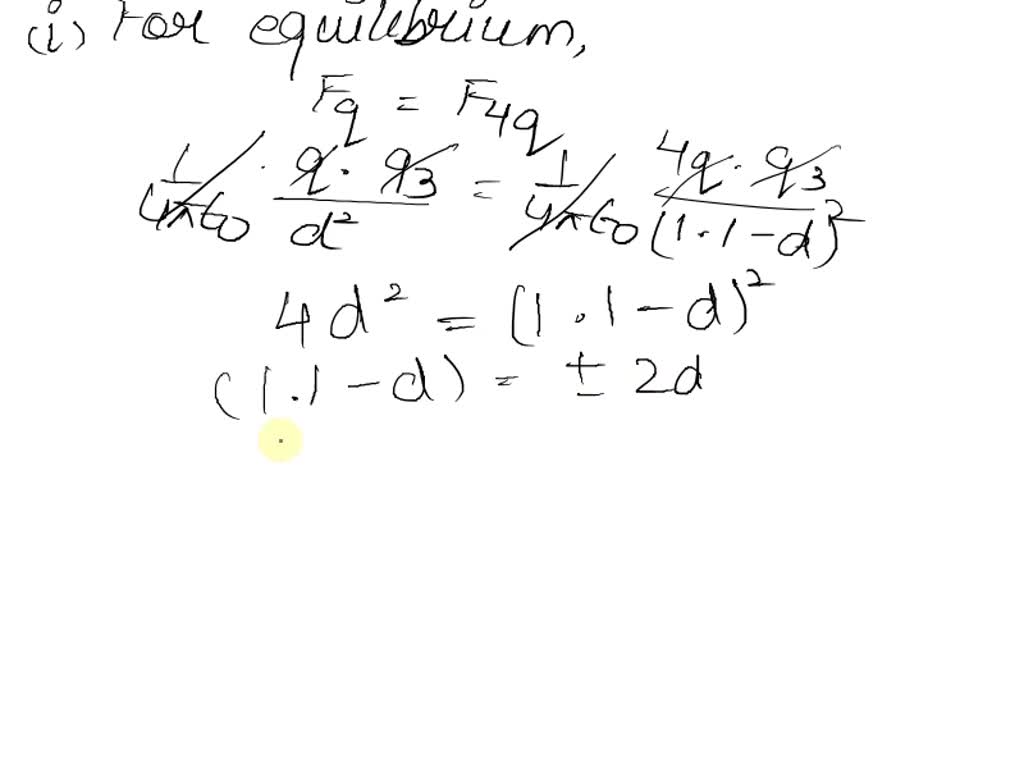 (i) For equilibrium,
Fq = F4q
1/4πϵ0 · q · q3/d² = 1/4πϵ0 4q · q3/(1.1-d)²
4d² = (1.1-d)²
(1.1-d) = ± 2d